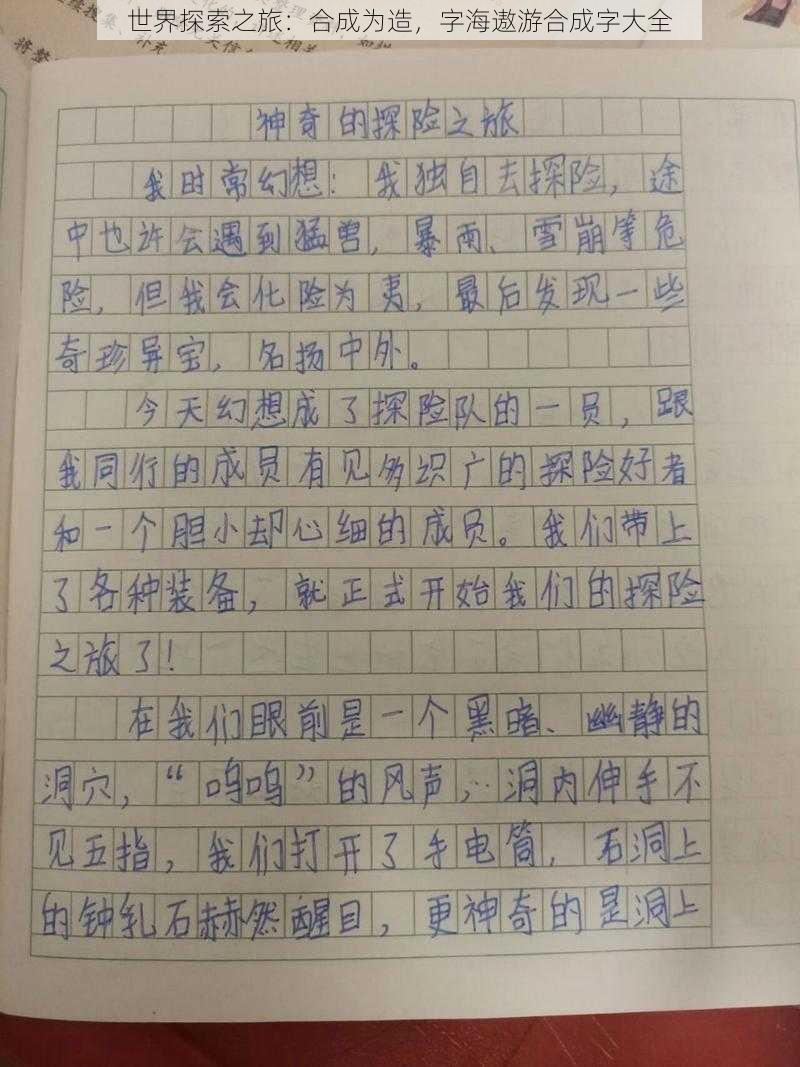 世界探索之旅：合成为造，字海遨游合成字大全
神奇的探险之旅
我时常幻想：我独自去探险，途
中也许会遇到猛兽，暴雨、雪崩等危
险，但我会化险为夷，最后发现一些
奇珍异宝，名扬中外。
今天幻想成了探险队的一员，跟
我同行的成员有见多识广的探险好者
和一个胆小却心细的成员。我们带上
了各种装备，就正式开始我们的探险
之旅了！
在我们眼前是一个黑暗、幽静的
洞穴，“呜呜”的风声，洞内伸手不
见五指，我们打开了手电筒，石洞上
的钟乳石赫然醒目，更神奇的是洞上